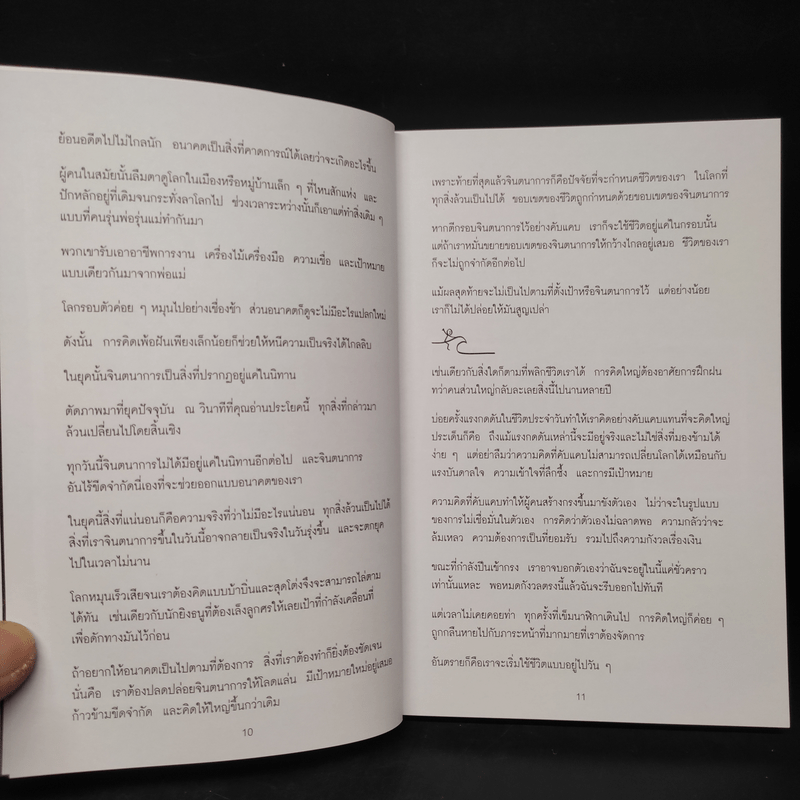 ย้อนอดีตไปไม่ไกลนัก อนาคตเป็นสิ่งที่คาดการณ์ได้เลยว่าจะเกิดอะไรขึ้น
ผู้คนในสมัยนั้นลืมตาดูโลกในเมืองหรือหมู่บ้านเล็ก ๆ ที่ไหนสักแห่ง และ
ปักหลักอยู่ที่เดิมจนกระทั่งลาโลกไป ช่วงเวลาระหว่างนั้นก็เอาแต่ทำสิ่งเดิม ๆ
แบบที่คนรุ่นพ่อรุ่นแม่ทำกันมา
พวกเขารับเอาอาชีพการงาน เครื่องไม้เครื่องมือ ความเชื่อ และเป้าหมาย
แบบเดียวกันมาจากพ่อแม่
โลกรอบตัวค่อย ๆ หมุนไปอย่างเชื่องช้า ส่วนอนาคตก็ดูจะไม่มีอะไรแปลกใหม่
ดังนั้น การคิดเพ้อฝันเพียงเล็กน้อยก็ช่วยให้หนีความเป็นจริงได้ไกลลิบ
ในยุคนั้นจินตนาการเป็นสิ่งที่ปรากฏอยู่แค่ในนิทาน
ตัดภาพมาที่ยุคปัจจุบัน ณ วินาทีที่คุณอ่านประโยคนี้ ทุกสิ่งที่กล่าวมา
ล้วนเปลี่ยนไปโดยสิ้นเชิง
ทุกวันนี้จินตนาการไม่ได้มีอยู่แค่ในนิทานอีกต่อไป และจินตนาการ
อันไร้ขีดจำกัดนี่เองที่จะช่วยออกแบบอนาคตของเรา
ในยุคนี้สิ่งที่แน่นอนก็คือความจริงที่ว่าไม่มีอะไรแน่นอน ทุกสิ่งล้วนเป็นไปได้
สิ่งที่เราจินตนาการขึ้นในวันนี้อาจกลายเป็นจริงในวันรุ่งขึ้น และจะตกยุค
ไปในเวลาไม่นาน
โลกหมุนเร็วเสียจนเราต้องคิดแบบบ้าบิ่นและสุดโต่งจึงจะสามารถไล่ตาม
ได้ทัน เช่นเดียวกับนักยิงธนูที่ต้องเล็งลูกศรให้เลยเป้าที่กำลังเคลื่อนที่
เพื่อดักทางมันไว้ก่อน
ถ้าอยากให้อนาคตเป็นไปตามที่ต้องการ สิ่งที่เราต้องทำก็ยิ่งต้องชัดเจน
นั่นคือ เราต้องปลดปล่อยจินตนาการให้โลดแล่น มีเป้าหมายใหม่อยู่เสมอ
ก้าวข้ามขีดจำกัด และคิดให้ใหญ่ขึ้นกว่าเดิม
10
เพราะท้ายที่สุดแล้วจินตนาการก็คือปัจจัยที่จะกำหนดชีวิตของเรา ในโลกที่
ทุกสิ่งล้วนเป็นไปได้ ขอบเขตของชีวิตถูกกำหนดด้วยขอบเขตของจินตนาการ
หากตีกรอบจินตนาการไว้อย่างคับแคบ เราก็จะใช้ชีวิตอยู่แค่ในกรอบนั้น
แต่ถ้าเราหมั่นขยายขอบเขตของจินตนาการให้กว้างไกลอยู่เสมอ ชีวิตของเรา
ก็จะไม่ถูกจำกัดอีกต่อไป
แม้ผลสุดท้ายจะไม่เป็นไปตามที่ตั้งเป้าหรือจินตนาการไว้ แต่อย่างน้อย
เราก็ไม่ได้ปล่อยให้มันสูญเปล่า
เช่นเดียวกับสิ่งใดก็ตามที่พลิกชีวิตเราได้ การคิดใหญ่ต้องอาศัยการฝึกฝน
ทว่าคนส่วนใหญ่กลับละเลยสิ่งนี้ไปนานหลายปี
บ่อยครั้งแรงกดดันในชีวิตประจำวันทำให้เราคิดอย่างคับแคบแทนที่จะคิดใหญ่
ประเด็นก็คือ ถึงแม้แรงกดดันเหล่านี้จะมีอยู่จริงและไม่ใช่สิ่งที่มองข้ามได้
ง่าย ๆ แต่อย่าลืมว่าความคิดที่คับแคบไม่สามารถเปลี่ยนโลกได้เหมือนกับ
แรงบันดาลใจ ความเข้าใจที่ลึกซึ้ง และการมีเป้าหมาย
ความคิดที่คับแคบทำให้ผู้คนสร้างกรงขึ้นมาขังตัวเอง ไม่ว่าจะในรูปแบบ
ของการไม่เชื่อมั่นในตัวเอง การคิดว่าตัวเองไม่ฉลาดพอ ความกลัวว่าจะ
ล้มเหลว ความต้องการเป็นที่ยอมรับ รวมไปถึงความกังวลเรื่องเงิน
ขณะที่กำลังปีนเข้ากรง เราอาจบอกตัวเองว่าฉันจะอยู่ในนี้แค่ชั่วคราว
เท่านั้นแหละ พอหมดกังวลตรงนี้แล้วฉันจะรีบออกไปทันที
แต่เวลาไม่เคยคอยท่า ทุกครั้งที่เข็มนาฬิกาเดินไป การคิดใหญ่ก็ค่อย ๆ
ถูกกลืนหายไปกับภาระหน้าที่มากมายที่เราต้องจัดการ
อันตรายก็คือเราจะเริ่มใช้ชีวิตแบบอยู่ไปวัน ๆ
11